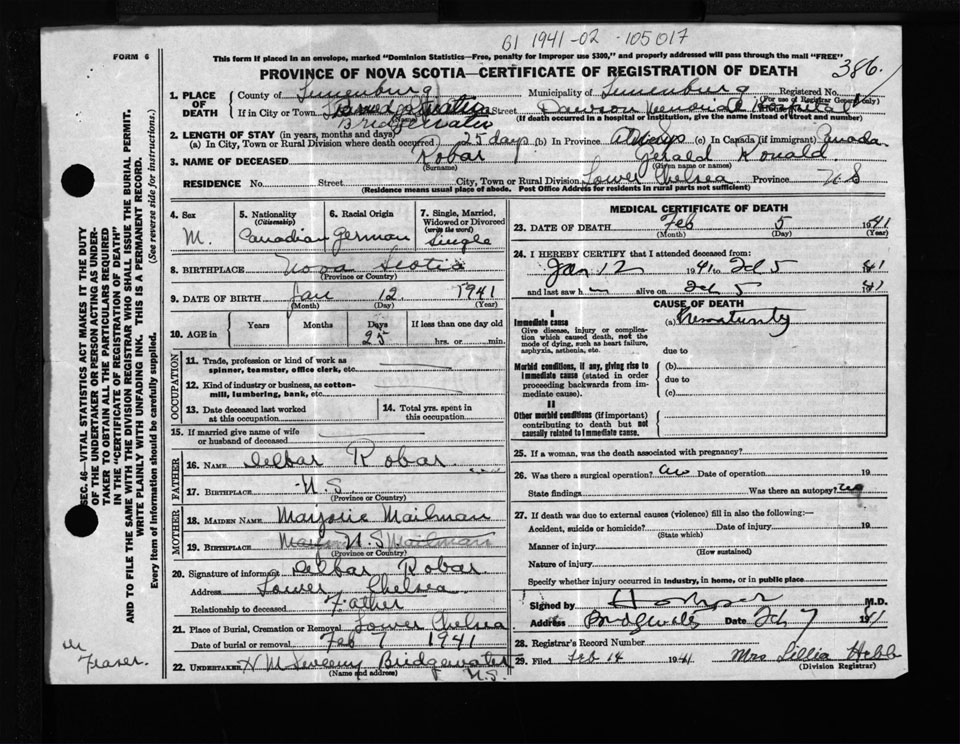 01 1941-02-105017
386.
FORM 6
This form if placed in an envelope, marked "Dominion Statistics—Free, penalty for improper use $300," and properly addressed will pass through the mail "FREE"
PROVINCE OF NOVA SCOTIA—CERTIFICATE OF REGISTRATION OF DEATH
1. PLACE OF DEATH County of Lunenburg Municipality of Lunenburg Registered No.
(For use of Registrar General only)
If in City or Town Bridgewater Street Dawson Memorial Hospital
(If death occurred in a hospital or institution, give the name instead of street and number)
Bridgewater
2. LENGTH OF STAY (in years, months and days)
(a) In City, Town or Rural Division where death occurred 25 days (b) In Province Always (c) In Canada (if immigrant) Canada
3. NAME OF DECEASED Robar Gerald Ronald
(Surname) (Given name or names)
RESIDENCE No. Street City, Town or Rural Division Lower Chelsea Province N S
(Residence means usual place of abode. Post Office Address for residents in rural parts not sufficient)
4. Sex M.
5. Nationality (Citizenship) Canadian
6. Racial Origin German
7. Single, Married, Widowed or Divorced (write the word) Single
8. BIRTHPLACE Nova Scotia
(Province or Country)
9. DATE OF BIRTH Jan 12 1941
(Month) (Day) (Year)
10. AGE in Years Months Days 25 If less than one day old hrs. or min.
OCCUPATION
11. Trade, profession or kind of work as spinner, teamster, office clerk, etc.
12. Kind of industry or business, as cotton-mill, lumbering, bank, etc.
13. Date deceased last worked at this occupation
14. Total yrs. spent in this occupation
15. If married give name of wife or husband of deceased
FATHER
16. NAME Delbar Robar
17. BIRTHPLACE N.S.
(Province or Country)
MOTHER
18. MAIDEN NAME Marjorie Mailman
19. BIRTHPLACE N.S Mailman
(Province or Country)
20. Signature of informant Delbar Robar
Address Lower Chelsea
Relationship to deceased Father
21. Place of Burial, Cremation or Removal Lower Chelsea
Date of burial or removal Feb 7 1941
22. UNDERTAKER Bridgewater
(Name and address)
N.S.
MEDICAL CERTIFICATE OF DEATH
23. DATE OF DEATH Feb 5 1941
(Month) (Day) (Year)
24. I HEREBY CERTIFY that I attended deceased from:
Jan 12 1941 to Feb 5 1941
and last saw h alive on Feb 5 1941
CAUSE OF DEATH
I
Immediate cause (a) Prematurity
Give disease, injury or complication which caused death, not the mode of dying, such as heart failure, asphyxia, asthenia, etc.
due to
Morbid conditions, if any, giving rise to immediate cause (stated in order proceeding backwards from immediate cause)
(b)
due to
(c)
II
Other morbid conditions (if important) contributing to death but not causally related to immediate cause.
25. If a woman, was the death associated with pregnancy?
26. Was there a surgical operation? no Date of operation 19
State findings Was there an autopsy? no
27. If death was due to external causes (violence) fill in also the following:—
Accident, suicide or homicide? Date of injury 19
(State which)
Manner of injury
(How sustained)
Nature of injury
Specify whether injury occurred in industry, in home, or in public place
Signed by M.D.
Address Bridgewater Date Feb 7 1941
28. Registrar's Record Number
29. Filed Feb 14 1941 Mrs Lillia Hebb
(Division Registrar)
SEC. 46—VITAL STATISTICS ACT MAKES IT THE DUTY
OF THE UNDERTAKER OR PERSON ACTING AS UNDER-
TAKER TO OBTAIN ALL THE PARTICULARS REQUIRED
IN THE "CERTIFICATE OF REGISTRATION OF DEATH"
AND TO FILE THE SAME WITH THE DIVISION REGISTRAR WHO SHALL ISSUE THE BURIAL PERMIT.
WRITE PLAINLY WITH UNFADING INK. THIS IS A PERMANENT RECORD.
Every item of Information should be carefully supplied. (See reverse side for instructions.)
Fraser.